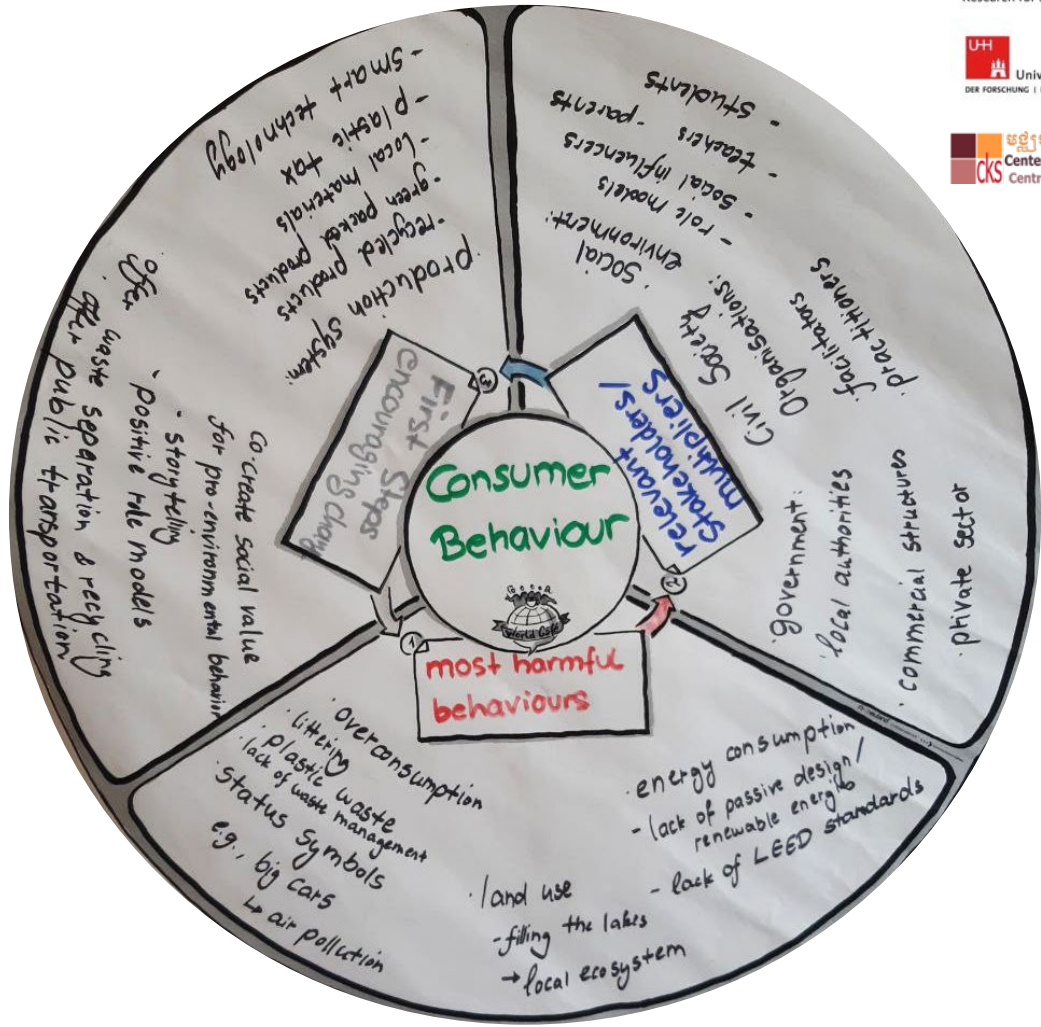 Consumer
Behaviour
World Café
1
most harmful
behaviours
· overconsumption
· littering
plastic waste
· lack of waste management
· Status Symbols
e.g., big cars
↳ air pollution
· land use
- filling the lakes
→ local ecosystem
· energy consumption
- lack of passive design/
renewable energies
- lack of LEED standards
2
relevant
stakeholders/
multipliers
· government:
· local authorities
· commercial structures
· private sector
Civil Society
Organisations:
facilitators
practitioners
· Social
environment:
- role models
- Social influencers
- teachers -parents
- students
3
First Steps
encouraging
production system:
-recycled products
-green packed products
-Local materials
-plastic tax
-smart technology
Co-create social value
for pro-environmental behavior
· storytelling
· positive role models
offer waste separation & recycling
offer public transportation
UHH
DER FORSCHUNG |
CKS